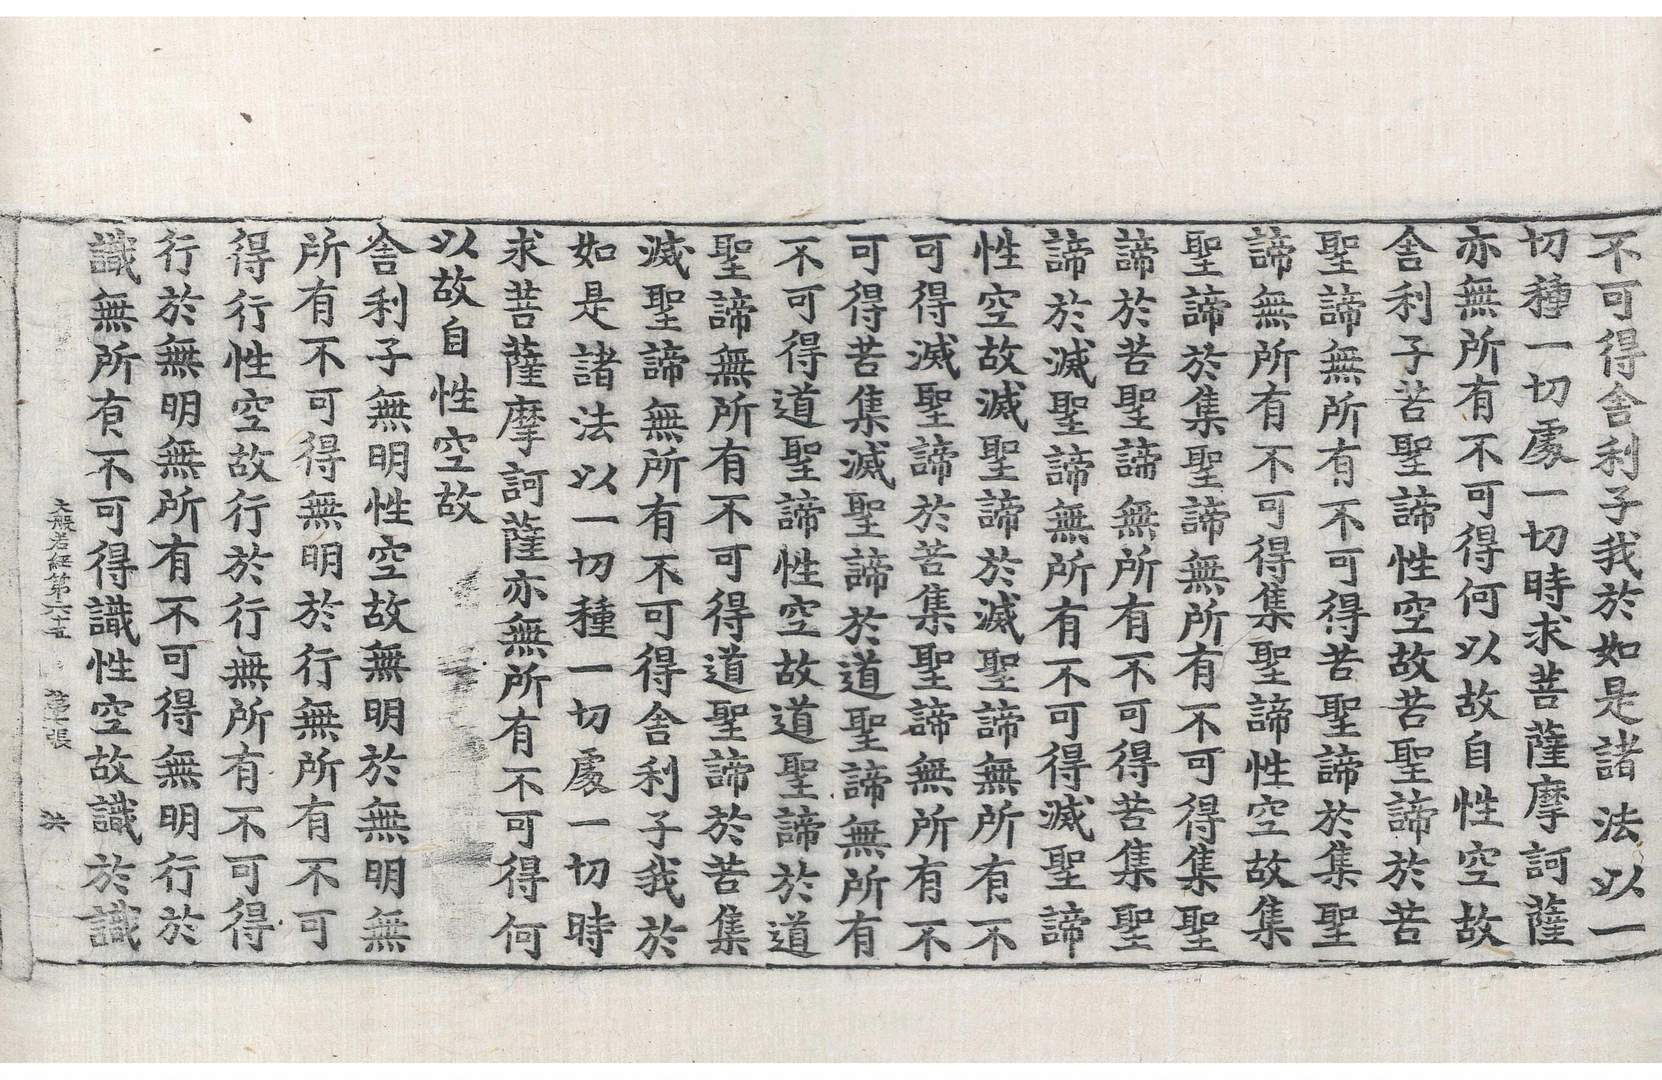 不可得舎利子我於如是諸法以一
切種一切處一切時求菩薩摩訶薩
亦無所有不可得何以故自性空故
舎利子苦聖諦性空故苦聖諦於苦
聖諦無所有不可得苦聖諦於集聖
諦無所有不可得集聖諦性空故集
聖諦於集聖諦無所有不可得集聖
諦於苦聖諦無所有不可得苦集聖
諦於滅聖諦無所有不可得滅聖諦
性空故滅聖諦於滅聖諦無所有不
可得滅聖諦於苦集聖諦無所有不
可得苦集滅聖諦於道聖諦無所有
不可得道聖諦性空故道聖諦於道
聖諦無所有不可得道聖諦於苦集
滅聖諦無所有不可得舎利子我於
如是諸法以一切種一切處一切時
求菩薩摩訶薩亦無所有不可得何
以故自性空故
舎利子無明性空故無明於無明無
所有不可得無明於行無所有不可
得行性空故行於行無所有不可得
行於無明無所有不可得無明行於
識無所有不可得識性空故識於識
大般若經第六十五 第張 洪